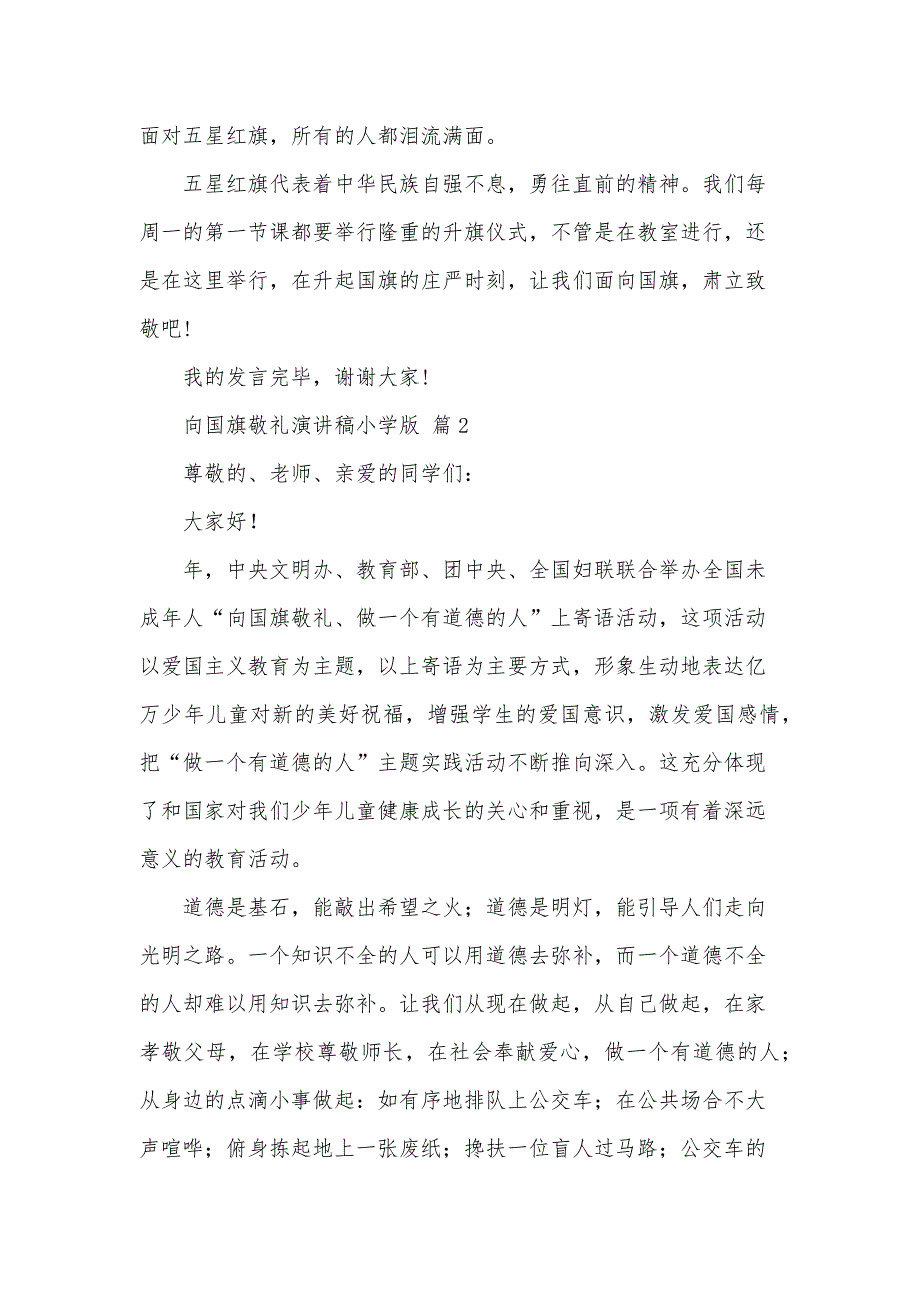 面对五星红旗，所有的人都泪流满面。
五星红旗代表着中华民族自强不息，勇往直前的精神。我们每
周一的第一节课都要举行隆重的升旗仪式，不管是在教室进行，还
是在这里举行，在升起国旗的庄严时刻，让我们面向国旗，肃立致
敬吧!
我的发言完毕，谢谢大家!
向国旗敬礼演讲稿小学版 篇2
尊敬的、老师、亲爱的同学们：
大家好！
年，中央文明办、教育部、团中央、全国妇联联合举办全国未
成年人“向国旗敬礼、做一个有道德的人”上寄语活动，这项活动
以爱国主义教育为主题，以上寄语为主要方式，形象生动地表达亿
万少年儿童对新的美好祝福，增强学生的爱国意识，激发爱国感情，
把“做一个有道德的人”主题实践活动不断推向深入。这充分体现
了和国家对我们少年儿童健康成长的关心和重视，是一项有着深远
意义的教育活动。
道德是基石，能敲出希望之火；道德是明灯，能引导人们走向
光明之路。一个知识不全的人可以用道德去弥补，而一个道德不全
的人却难以用知识去弥补。让我们从现在做起，从自己做起，在家
孝敬父母，在学校尊敬师长，在社会奉献爱心，做一个有道德的人；
从身边的点滴小事做起：如有序地排队上公交车；在公共场合不大
声喧哗；俯身拣起地上一张废纸；搀扶一位盲人过马路；公交车的